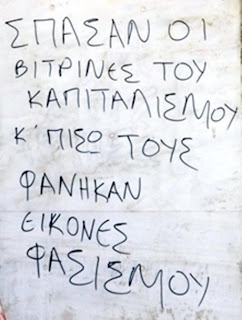 ΣΠΑΣΑΝ ΟΙ
ΒΙΤΡΙΝΕΣ ΤΟΥ
ΚΑΠΙΤΑΛΙΣΜΟΥ
Κ' ΠΙΣΩ ΤΟΥΣ
ΦΑΝΗΚΑΝ
ΕΙΚΟΝΕΣ
ΦΑΣΙΣΜΟΥ